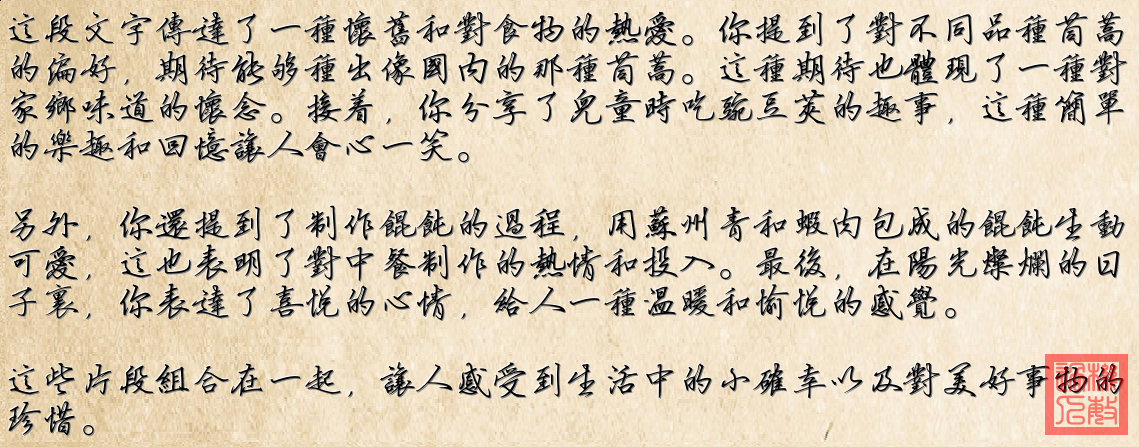 這段文字傳達了一種懷舊和對食物的熱愛。你提到了對不同品種茼蒿
的偏好，期待能够種出像國內的那種茼蒿。這種期待也體現了一種對
家鄉味道的懷念。接着，你分享了兒童時吃豌豆莢的趣事，這種簡單
的樂趣和回憶讓人會心一笑。
另外，你還提到了制作餛飩的過程，用蘇州青和蝦肉包成的餛飩生動
可愛，這也表明了對中餐制作的熱情和投入。最後，在陽光燦爛的日
子裏，你表達了喜悅的心情，給人一種溫暖和愉悅的感覺。
這些片段組合在一起，讓人感受到生活中的小確幸以及對美好事物的
珍惜。